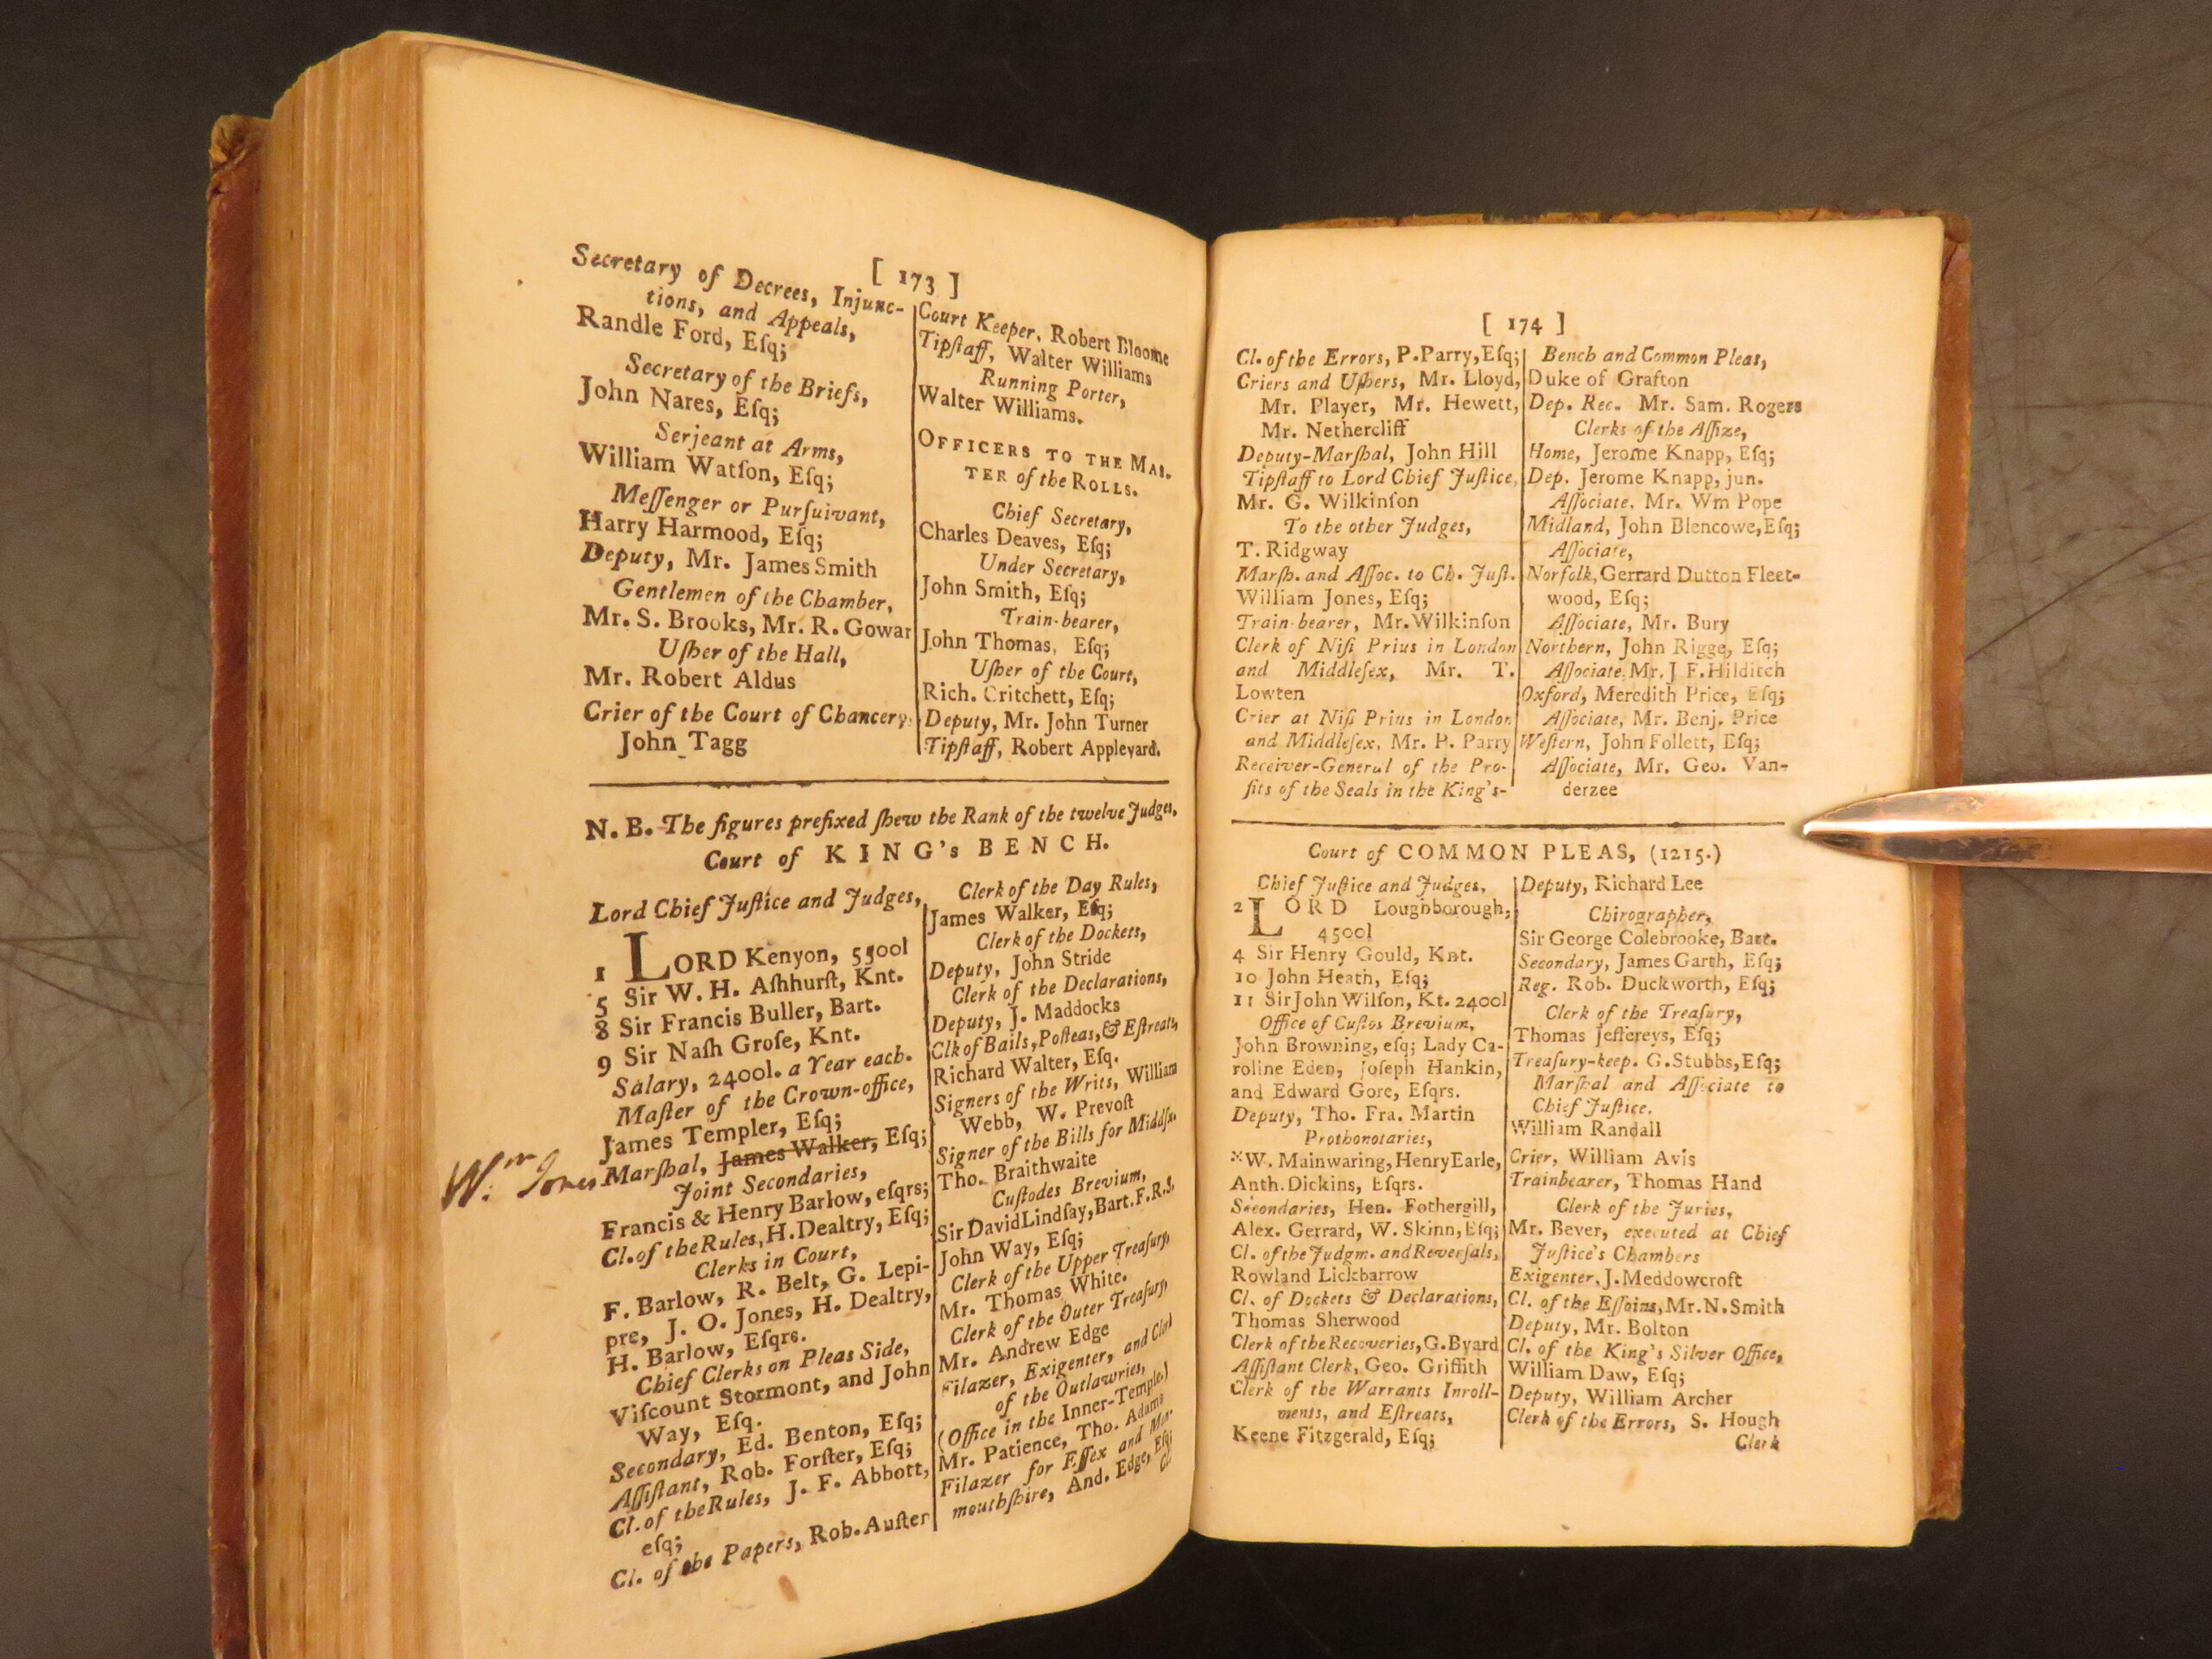 [ 173 ]
Secretary of Decrees, Injunc-
tions, and Appeals,
Randle Ford, Eſq;
Secretary of the Briefs,
John Nares, Eſq;
Serjeant at Arms,
William Watſon, Eſq;
Meſſenger or Purſuivant,
Harry Harmood, Eſq;
Deputy, Mr. James Smith
Gentlemen of the Chamber,
Mr. S. Brooks, Mr. R. Gowar
Uſher of the Hall,
Mr. Robert Aldus
Crier of the Court of Chancery,
John Tagg
Court Keeper, Robert Bloome
Tipſtaff, Walter Williams
Running Porter,
Walter Williams.
OFFICERS TO THE MAS-
TER of the ROLLS.
Chief Secretary,
Charles Deaves, Eſq;
Under Secretary,
John Smith, Eſq;
Train-bearer,
John Thomas, Eſq;
Uſher of the Court,
Rich. Critchett, Eſq;
Deputy, Mr. John Turner
Tipſtaff, Robert Appleyard.
N. B. The figures prefixed ſhew the Rank of the twelve Judges.
Court of KING's BENCH.
Lord Chief Juſtice and Judges,
1 LORD Kenyon, 5500l
5 Sir W. H. Aſhhurſt, Knt.
8 Sir Francis Buller, Bart.
9 Sir Naſh Groſe, Knt.
Salary, 2400l. a Year each.
Maſter of the Crown-office,
James Templer, Eſq;
Wm Jones
Marſhal, James Walker, Eſq;
Joint Secondaries,
Francis & Henry Barlow, eſqrs;
Cl. of the Rules, H. Dealtry, Eſq;
Clerks in Court,
F. Barlow, R. Belt, G. Lepi-
pre, J. O. Jones, H. Dealtry,
H. Barlow, Eſqrs.
Chief Clerks on Pleas Side,
Viſcount Stormont, and John
Way, Eſq.
Secondary, Ed. Benton, Eſq;
Aſſiſtant, Rob. Forſter, Eſq;
Cl. of the Rules, J. F. Abbott,
eſq;
Cl. of the Papers, Rob. Auſter
Clerk of the Day Rules,
James Walker, Eſq;
Clerk of the Dockets,
Deputy, John Stride
Clerk of the Declarations,
Deputy, J. Maddocks
Clk of Bails, Poſteas, & Eſtreats,
Richard Walter, Eſq.
Signers of the Writs, William
Webb, W. Prevoſt
Signer of the Bills for Middſx.
Tho. Braithwaite
Cuſtodes Brevium,
Sir David Lindſay, Bart. F.R.S.
John Way, Eſq;
Clerk of the Upper Treaſury,
Mr. Thomas White.
Clerk of the Outer Treaſury,
Mr. Andrew Edge
Filazer, Exigenter, and Clerk
of the Outlawries,
(Office in the Inner-Temple.)
Mr. Patience, Tho. Adams
Filazer for Eſſex and Mon-
mouthſhire, And. Edge, Eſq;
Cl.
[ 174 ]
Cl. of the Errors, P. Parry, Eſq;
Criers and Uſhers, Mr. Lloyd,
Mr. Player, Mr. Hewett,
Mr. Nethercliff
Deputy-Marſhal, John Hill
Tipſtaff to Lord Chief Juſtice,
Mr. G. Wilkinſon
To the other Judges,
T. Ridgway
Marſh. and Aſſoc. to Ch. Juſt.
William Jones, Eſq;
Train-bearer, Mr. Wilkinſon
Clerk of Niſi Prius in London
and Middleſex, Mr. T.
Lowten
Crier at Niſi Prius in London
and Middleſex, Mr. P. Parry
Receiver-General of the Pro-
fits of the Seals in the King's-
Bench and Common Pleas,
Duke of Grafton
Dep. Rec. Mr. Sam. Rogers
Clerks of the Aſſize,
Home, Jerome Knapp, Eſq;
Dep. Jerome Knapp, jun.
Aſſociate, Mr. Wm Pope
Midland, John Blencowe, Eſq;
Aſſociate,
Norfolk, Gerrard Dutton Fleet-
wood, Eſq;
Aſſociate, Mr. Bury
Northern, John Rigge, Eſq;
Aſſociate, Mr. J F. Hilditch
Oxford, Meredith Price, Eſq;
Aſſociate, Mr. Benj. Price
Weſtern, John Follett, Eſq;
Aſſociate, Mr. Geo. Van-
derzee
Court of COMMON PLEAS, (1215.)
Chief Juſtice and Judges,
2 LORD Loughborough,
4500l
4 Sir Henry Gould, Knt.
10 John Heath, Eſq;
11 Sir John Wilſon, Kt. 2400l
Office of Cuſtos Brevium,
John Browning, eſq; Lady Ca-
roline Eden, Joſeph Hankin,
and Edward Gore, Eſqrs.
Deputy, Tho. Fra. Martin
Prothonotaries,
*W. Mainwaring, Henry Earle,
Anth. Dickins, Eſqrs.
Secondaries, Hen. Fothergill,
Alex. Gerrard, W. Skinn, Eſq;
Cl. of the Judgm. and Reverſals,
Rowland Lickbarrow
Cl. of Dockets & Declarations,
Thomas Sherwood
Clerk of the Recoveries, G. Byard
Aſſiſtant Clerk, Geo. Griffith
Clerk of the Warrants Inroll-
ments, and Eſtreats,
Keene Fitzgerald, Eſq;
Deputy, Richard Lee
Chirographer,
Sir George Colebrooke, Bart.
Secondary, James Garth, Eſq;
Reg. Rob. Duckworth, Eſq;
Clerk of the Treaſury,
Thomas Jeffereys, Eſq;
Treaſury-keep. G. Stubbs, Eſq;
Marſhal and Aſſociate to
Chief Juſtice.
William Randall
Crier, William Avis
Trainbearer, Thomas Hand
Clerk of the Juries,
Mr. Bever, executed at Chief
Juſtice's Chambers
Exigenter, J. Meddowcroft
Cl. of the Eſſoins, Mr. N. Smith
Deputy, Mr. Bolton
Cl. of the King's Silver Office,
William Daw, Eſq;
Deputy, William Archer
Clerk of the Errors, S. Hough
Clerk